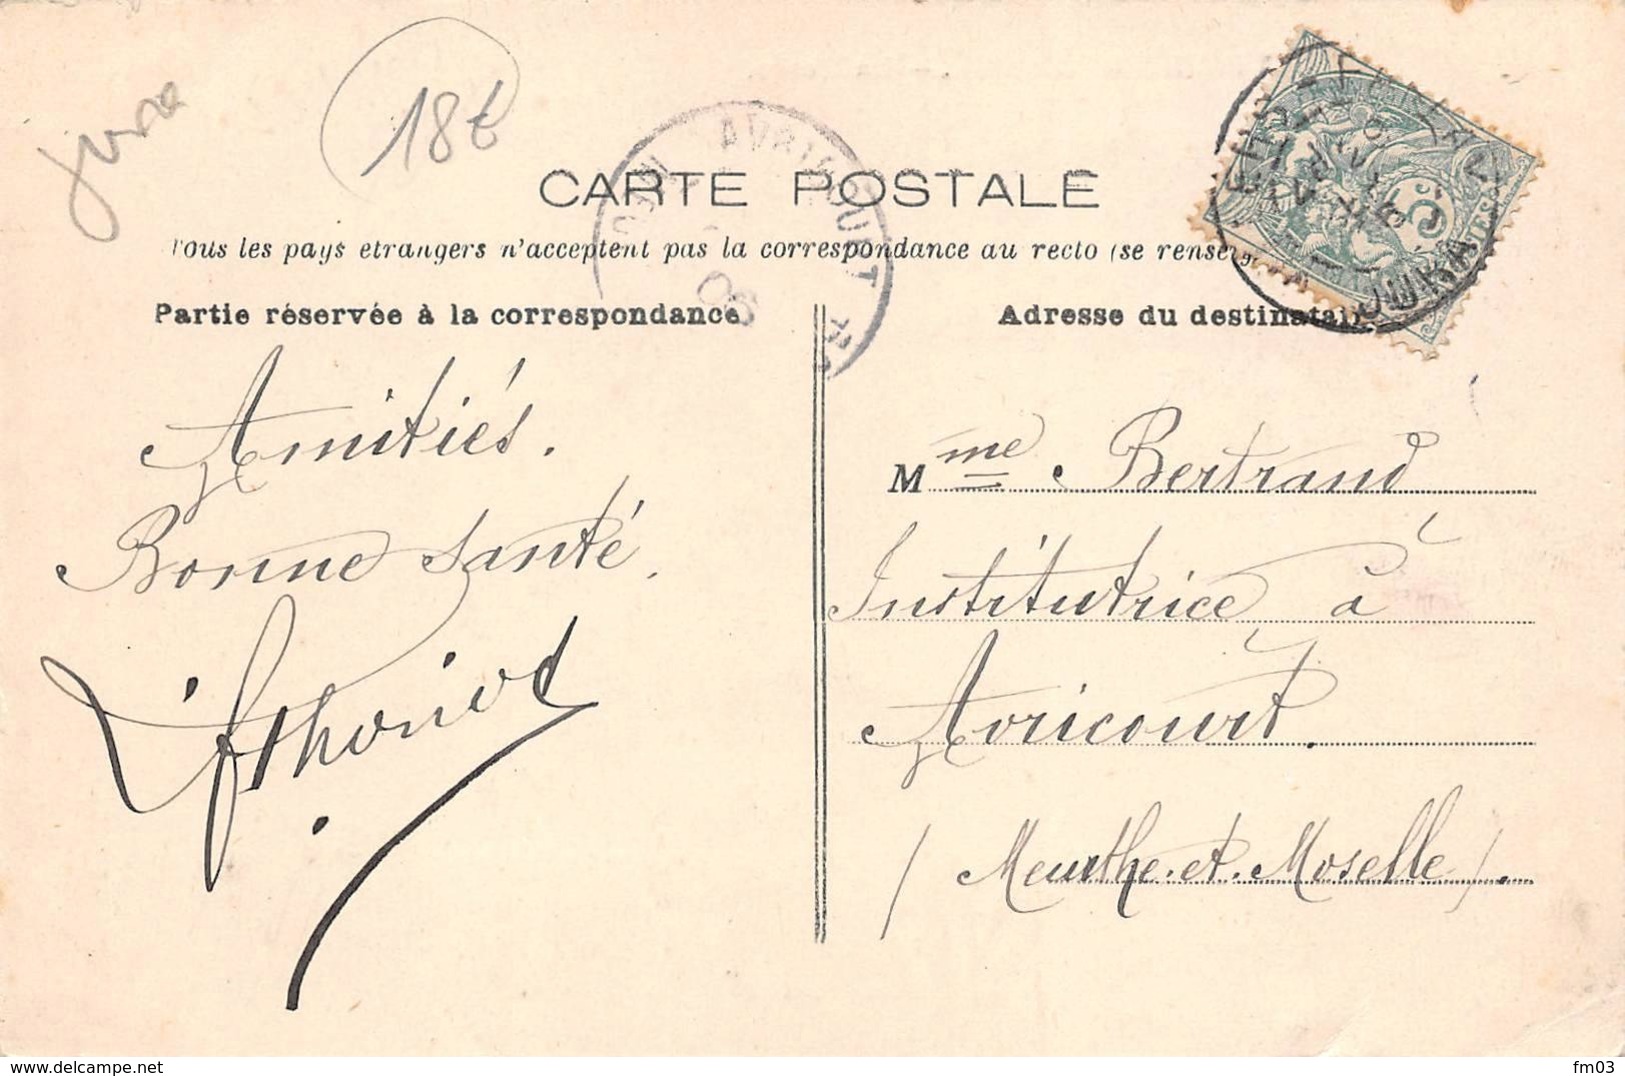 Jura
18€
CARTE POSTALE
Tous les pays étrangers n'acceptent pas la correspondance au recto (se renseig
Partie réservée à la correspondance
Adresse du destinatair
AVRICOURT
06
JURA
5c
Amitiés.
Bonne santé.
Mme Bertrand
Institutrice à
Avricourt.
(Meurthe-et-Moselle).
fm03